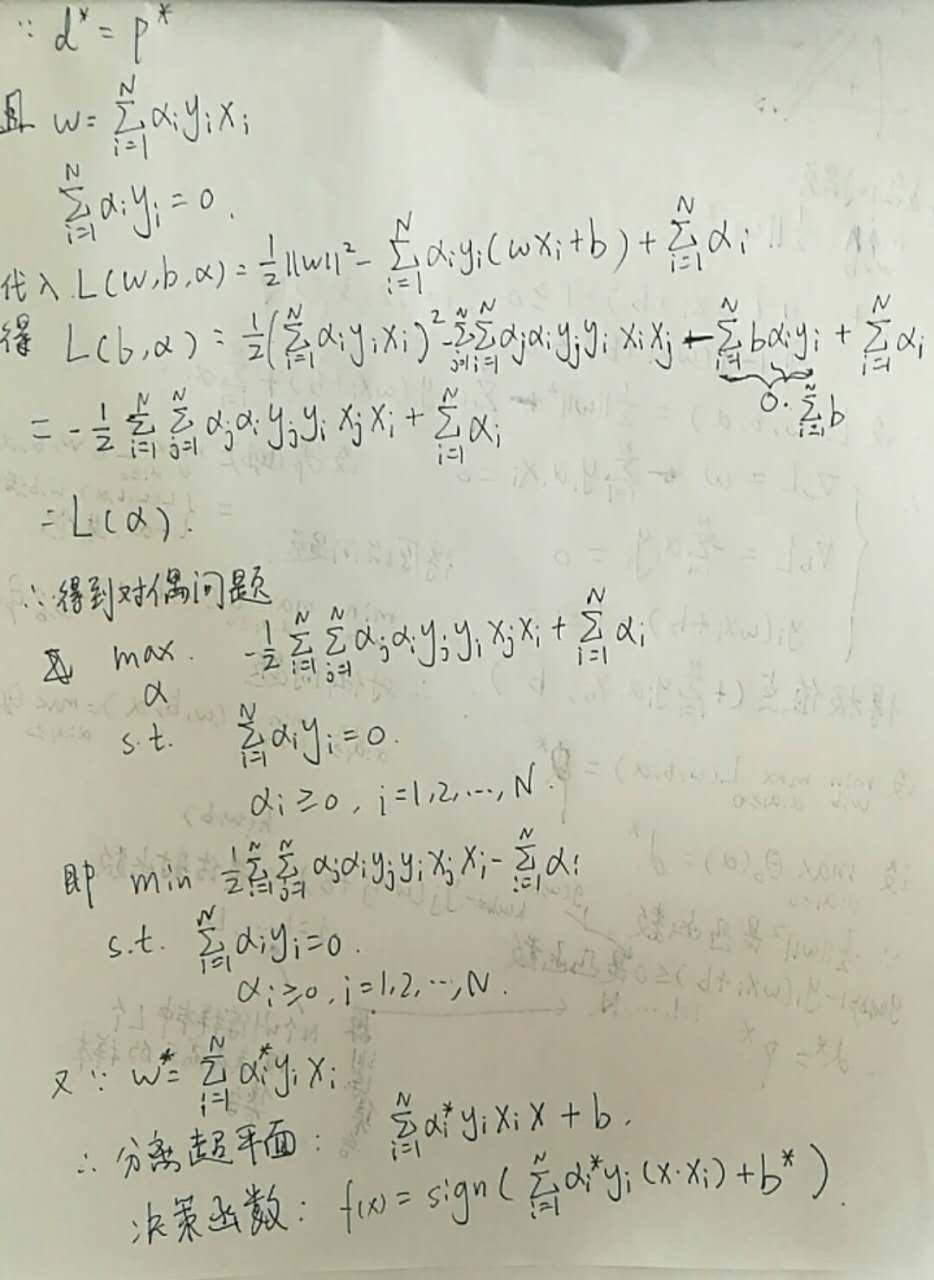 ∵ d* = p*
且 w = ∑_{i=1}^{N} αᵢyᵢxᵢ
∑_{i=1}^{N} αᵢyᵢ = 0.
代入 L(w,b,α) = ½||w||² - ∑_{i=1}^{N} αᵢyᵢ(wxᵢ+b) + ∑_{i=1}^{N} αᵢ
得 L(b,α) = ½(∑_{i=1}^{N} αᵢyᵢxᵢ)² - ∑_{j=1}^{N} ∑_{i=1}^{N} αⱼαᵢyⱼyᵢxᵢxⱼ - ∑_{i=1}^{N} bαᵢyᵢ + ∑_{i=1}^{N} αᵢ
0·∑_{i=1}^{N} b
= -½ ∑_{i=1}^{N} ∑_{j=1}^{N} αⱼαᵢyⱼyᵢxⱼxᵢ + ∑_{i=1}^{N} αᵢ
= L(α).
∴ 得到对偶问题
max_α -½ ∑_{i=1}^{N} ∑_{j=1}^{N} αⱼαᵢyⱼyᵢxⱼxᵢ + ∑_{i=1}^{N} αᵢ
s.t. ∑_{i=1}^{N} αᵢyᵢ = 0.
αᵢ ≥ 0, i=1,2,…,N.
即 min ½ ∑_{i=1}^{N} ∑_{j=1}^{N} αⱼαᵢyⱼyᵢxⱼxᵢ - ∑_{i=1}^{N} αᵢ
s.t. ∑_{i=1}^{N} αᵢyᵢ = 0.
αᵢ ≥ 0, i=1,2,…,N.
又∵ w* = ∑_{i=1}^{N} αᵢ*yᵢxᵢ
∴ 分离超平面: ∑_{i=1}^{N} αᵢ*yᵢxᵢx + b.
决策函数: f(x) = sign(∑_{i=1}^{N} αᵢ*yᵢ(x·xᵢ) + b*).